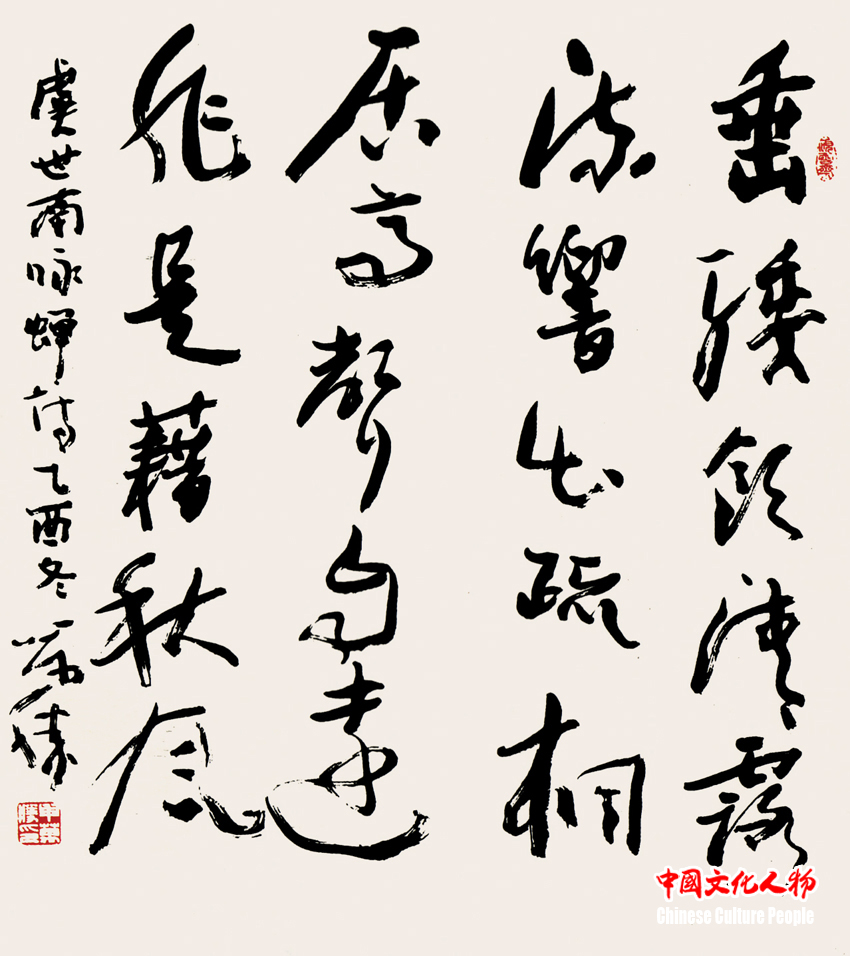 垂緌飲清露
流響出疏桐
居高聲自遠
非是藉秋風
虞世南咏蝉詩乙酉冬萬勝
申萬勝印
中國文化人物
Chinese Culture People